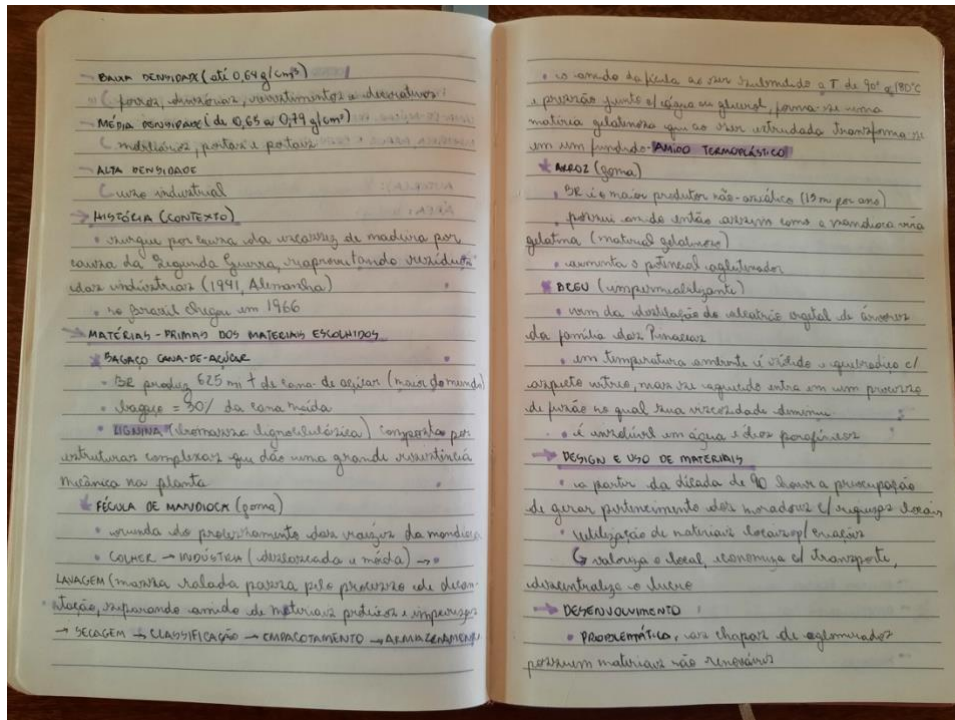 → BAIXA DENSIDADE (até 0,64 g/cm³)
forros, divisórias, revestimentos e decorativos
→ MÉDIA DENSIDADE (de 0,65 a 0,79 g/cm³)
mobiliários, portas e portais
→ ALTA DENSIDADE
uso industrial
→ HISTÓRIA (CONTEXTO)
• surgue por causa da escassez de madeira por
causa da Segunda Guerra, reaproveitando resíduos
das indústrias (1941, Alemanha)
• no Brasil chegou em 1966
→ MATÉRIAS-PRIMAS DOS MATERIAIS ESCOLHIDOS
BAGAÇO CANA-DE-AÇÚCAR
• BR produz 625 mi t de cana-de açúcar (maior do mundo)
• bagaço = 30% da cana moída
• LIGNINA (biomassa lignocelulósica) composta por
estruturas complexas que dão uma grande resistência
mecânica na planta
FÉCULA DE MANDIOCA (goma)
• oriunda do processamento das raízes da mandioca
• COLHER → INDÚSTRIA (descascada e moída) →
LAVAGEM (massa ralada passa pelo processo de decan-
tação, separando amido de materiais protéicos e impurezas
→ SECAGEM → CLASSIFICAÇÃO → EMPACOTAMENTO → ARMAZENAMENTO
• o amido da fécula ao ser submetido a T de 90° a 180°C
e pressão junto c/ água ou glicerol, forma-se uma
matéria gelatinosa que ao ser extrudada transforma-se
em um fundido - AMIDO TERMOPLÁSTICO
ARROZ (goma)
• BR é o maior produtor não-asiático (15 m por ano)
• possui amido então assim como a mandioca vira
gelatina (material gelatinoso)
• aumenta o potencial aglutinador
BREU (impermeabilizante)
• vem da destilação do oleatrio vegetal de árvores
da família das Pinaceas
• em temperatura ambiente é sólido e quebradico c/
aspecto vítreo, mas se aquecido entra em um processo
de fusão no qual sua viscosidade diminui
• é insolúvel em água
→ DESIGN E USO DE MATERIAIS
• a partir da década de 90 houve a preocupação
de gerar pertencimento dos moradores c/ riquezas locais
• utilização de materiais locais p/ criações
valoriza o local, economiza c/ transporte,
descentraliza o lucro
→ DESENVOLVIMENTO
• PROBLEMÁTICA, as chapas de aglomerados
possuem materiais não renováveis